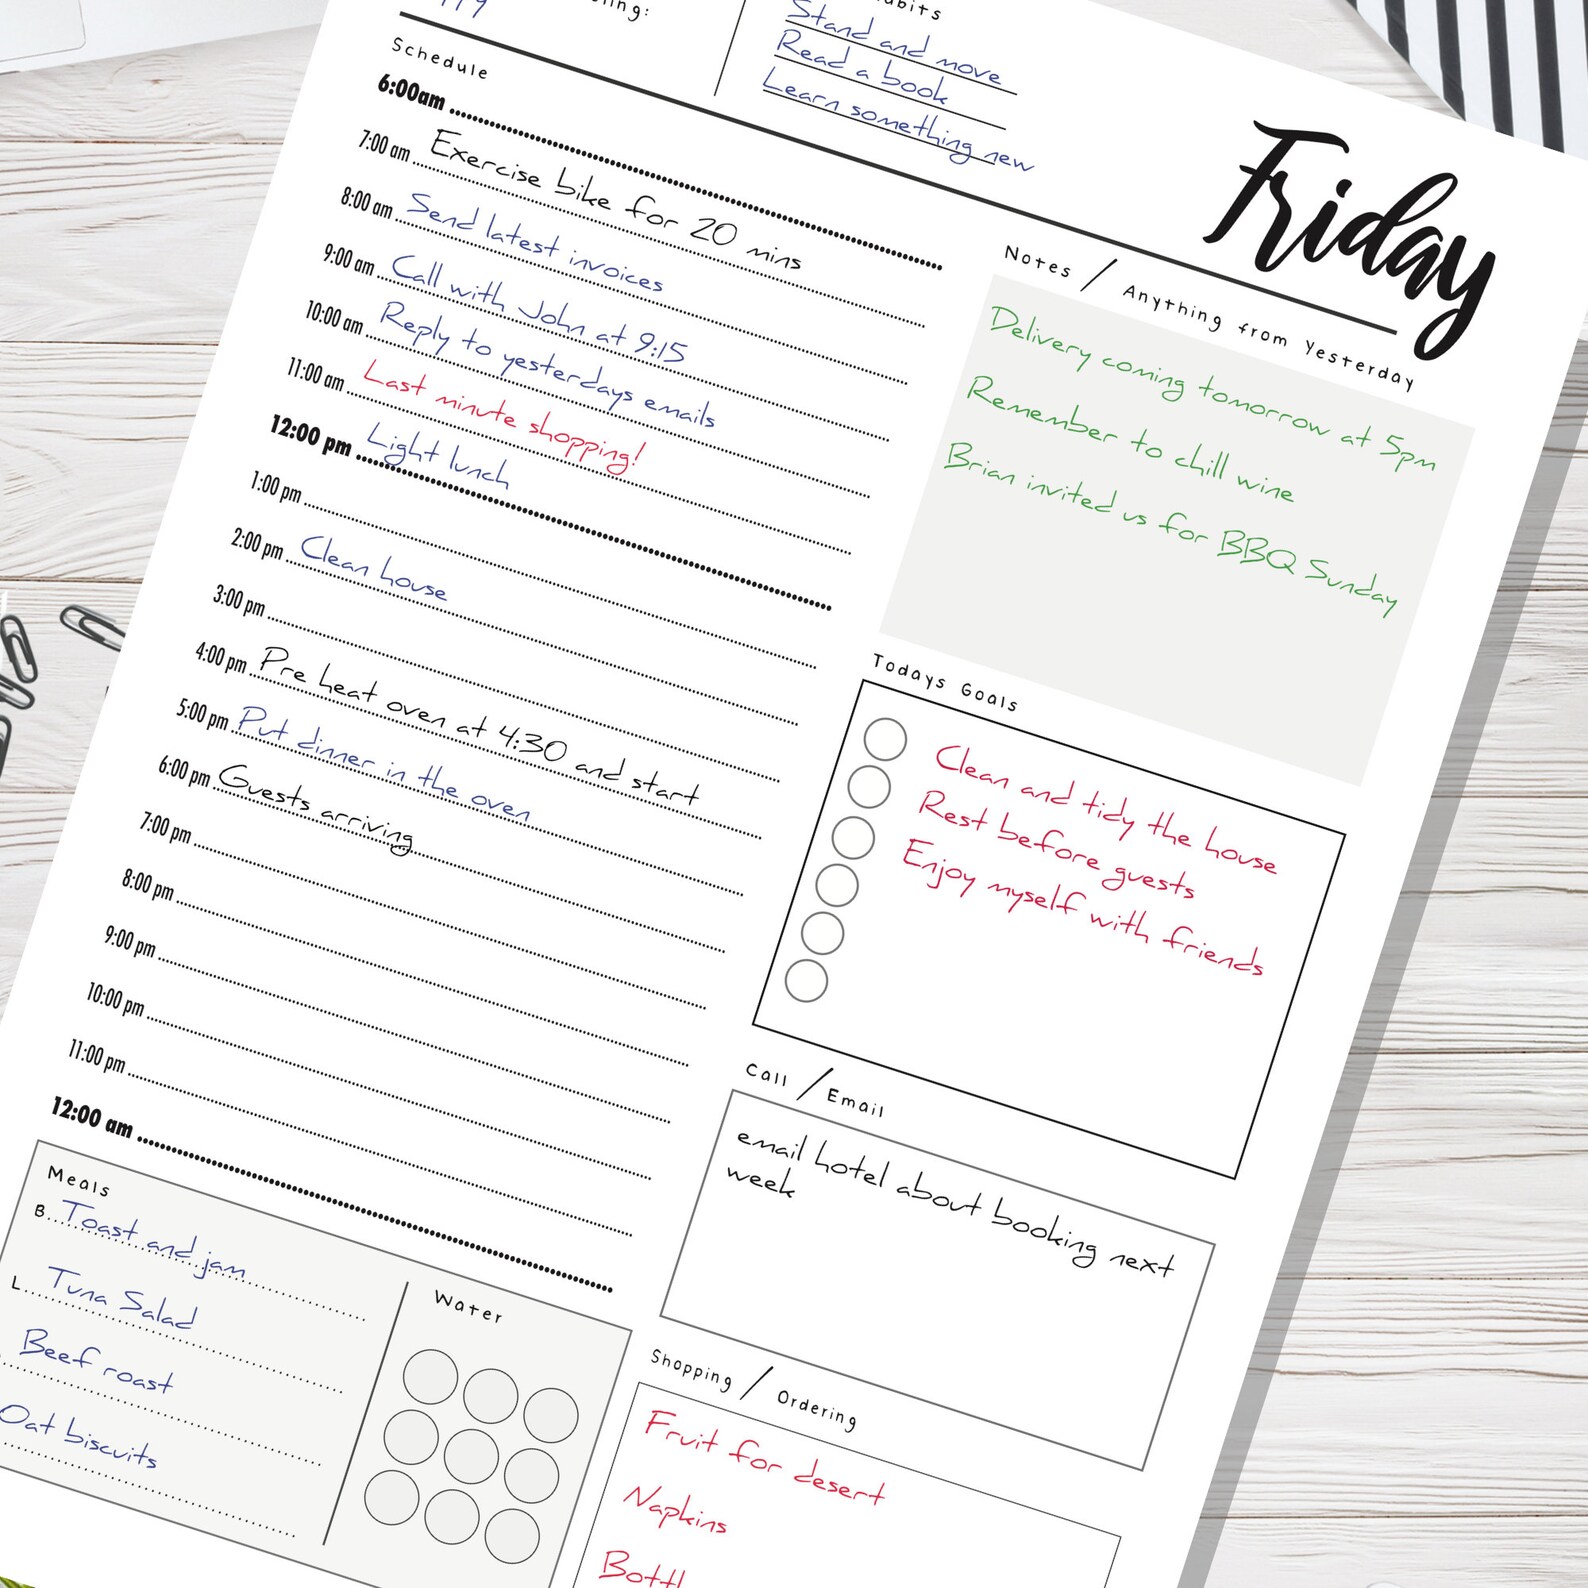 Stand and move
Read a book
Learn something new
Friday
Schedule
6:00am
7:00 am Exercise bike for 20 mins
8:00 am Send latest invoices
9:00 am Call with John at 9:15
10:00 am Reply to yesterdays emails
11:00 am Last minute shopping!
12:00 pm Light lunch
1:00 pm
2:00 pm Clean house
3:00 pm
4:00 pm Pre heat oven at 4:30 and start
5:00 pm Put dinner in the oven
6:00 pm Guests arriving
7:00 pm
8:00 pm
9:00 pm
10:00 pm
11:00 pm
12:00 am
Notes / Anything from Yesterday
Delivery coming tomorrow at 5pm
Remember to chill wine
Brian invited us for BBQ Sunday
Todays Goals
Clean and tidy the house
Rest before guests
Enjoy myself with friends
Call / Email
email hotel about booking next
week
Meals
B. Toast and jam
L. Tuna Salad
Beef roast
Oat biscuits
Water
Shopping / Ordering
Fruit for desert
Napkins